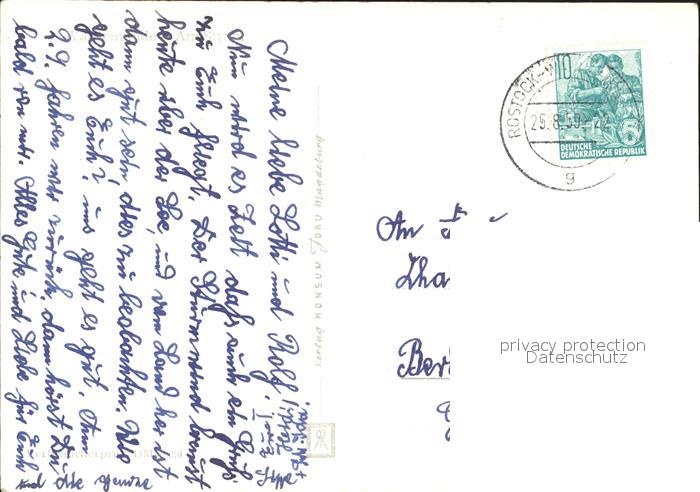 Meine liebe Lotti und Rolf!
Nun wird es Zeit daß auch ein Gruß
zu Euch fliegt. Der Sturmwind braust
heute über der See, und vom Land her ist
dann gut sein, dies zu beobachten. Wie
geht es Euch? uns geht es gut. Am
2.9. fahren wir zurück, dann hörst Du
bald von mir. Alles Gute und Liebe für Euch
und die
Verlag KONSUM FOKU Magdeburg
ROSTOCK-
25.8.59.-22
g
10
5
DEUTSCHE
DEMOKRATISCHE REPUBLIK
An
privacy protection
Datenschutz